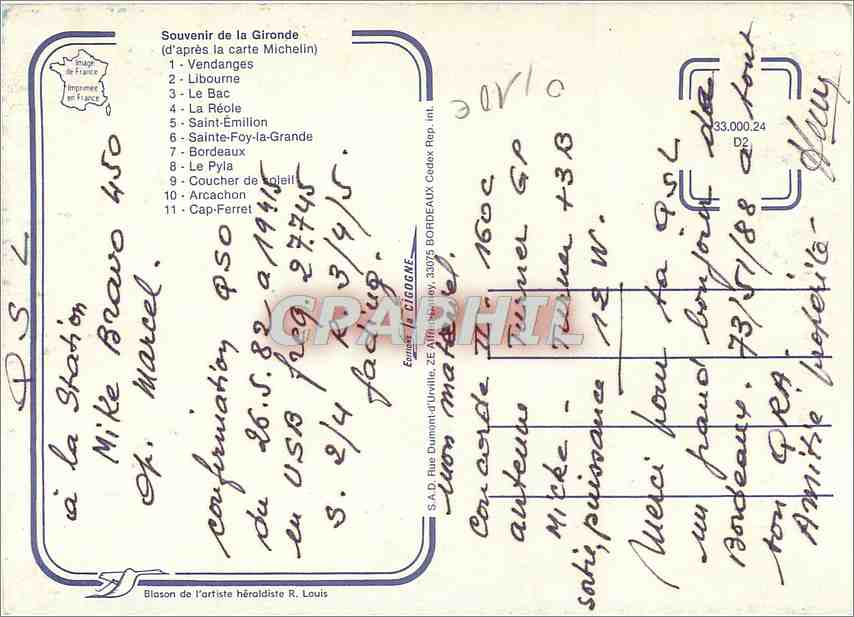 Souvenir de la Gironde
(d'après la carte Michelin)
1 - Vendanges
2 - Libourne
3 - Le Bac
4 - La Réole
5 - Saint-Émilion
6 - Sainte-Foy-la-Grande
7 - Bordeaux
8 - Le Pyla
9 - Coucher de soleil
10 - Arcachon
11 - Cap-Ferret
Image de France
Imprimée en France
Q S L
à la Station
Mike Bravo 450
Op. Marcel.
confirmation QSO
du 26.5.82 a 19H15
en USB freq. 27.745
S. 2/4 R. 3/4/5.
fading.
Editions la CIGOGNE
S.A.D. Rue Dumont-d'Urville, ZE 33075 BORDEAUX Cedex Rep. int.
mon materiel.
Concorde II. 160c
antenne Turner GP
Micke - Turner +3B
sortie, puissance 12 W.
Merci pour ta QSL
un grand bonjour de
Bordeaux. 73/51/88 a tout
ton QRA.
Amitié
33.000.24
D2
Blason de l'artiste héraldiste R. Louis
CPAPHIL